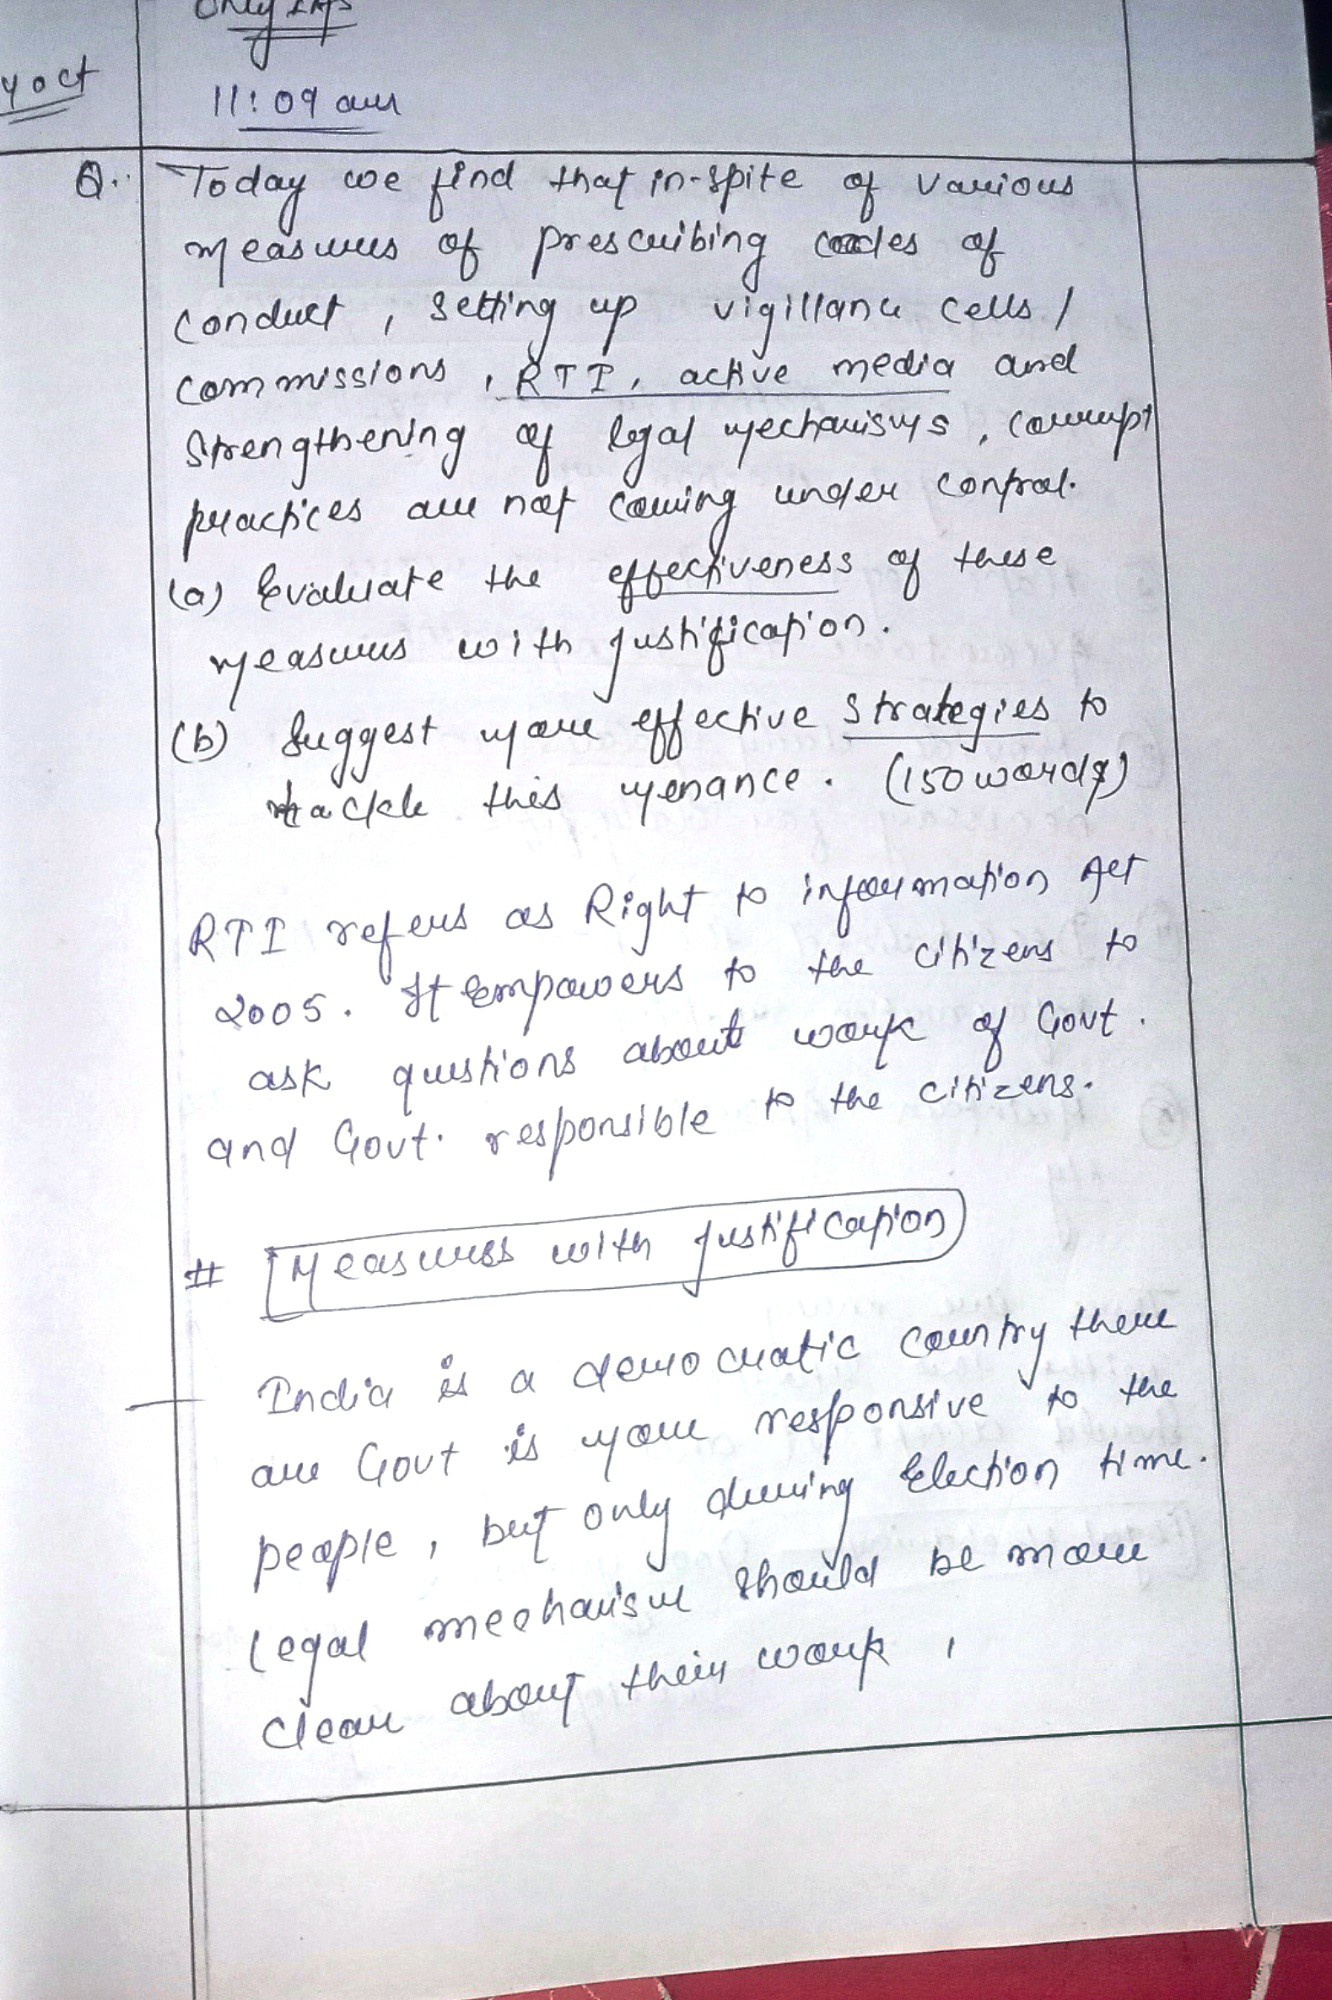 Only IAS
y oct
11:09 am
Q. Today we find that in-spite of various
measures of prescribing codes of
conduct, setting up vigillance cells/
commissions, RTI, active media and
Strengthening of legal mechanisms, corrupt
practices are not coming under control.
(a) Evaluate the effectiveness of these
measures with justification.
(b) Suggest more effective strategies to
tackle this menance. (150 words)
RTI refers as Right to information Act
2005. It empowers to the citizens to
ask questions about work of Govt.
and Govt. responsible to the citizens.
# Measuress with justification
India is a democratic country there
are Govt is more responsive to the
people, but only during Election time.
Legal mechanism should be more
clear about their work,